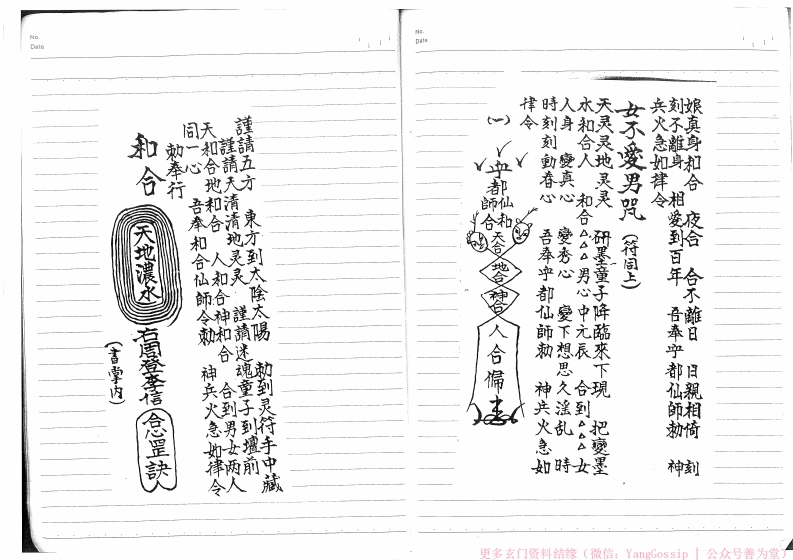 No.
Date
No.
Date
娘真身和合　夜合　合不離日　日親相倚　刻
刻不離身　相愛到百年　吾奉乎都仙師勅　神
兵火急如律令
女不愛男咒 (符同上)
天灵灵地灵灵　研墨童子降臨來下現　把變墨
水和合人　和合△△男心中元辰　合到△△△女
人身　變真心　變秀心　變下想思久淫乱　時
時刻刻動春心　吾奉乎都仙師勅　神兵火急如
律令
(一)
乎都仙師和合
天合
地合
神合
人合俻
謹請五方　東方到太陰太陽　勅到灵符手中藏
謹請天清清地灵灵　謹請迷魂童子到壇前
天和合地和合　人和合神和合　合到男女两人
同一心　吾奉和合仙師令勅　神兵火急如律令
勅奉行
和合
天地濃水
石周登李信
合罡訣
(書掌内)
更多玄门资料结缘（微信：YangGossip | 公众号善为堂）